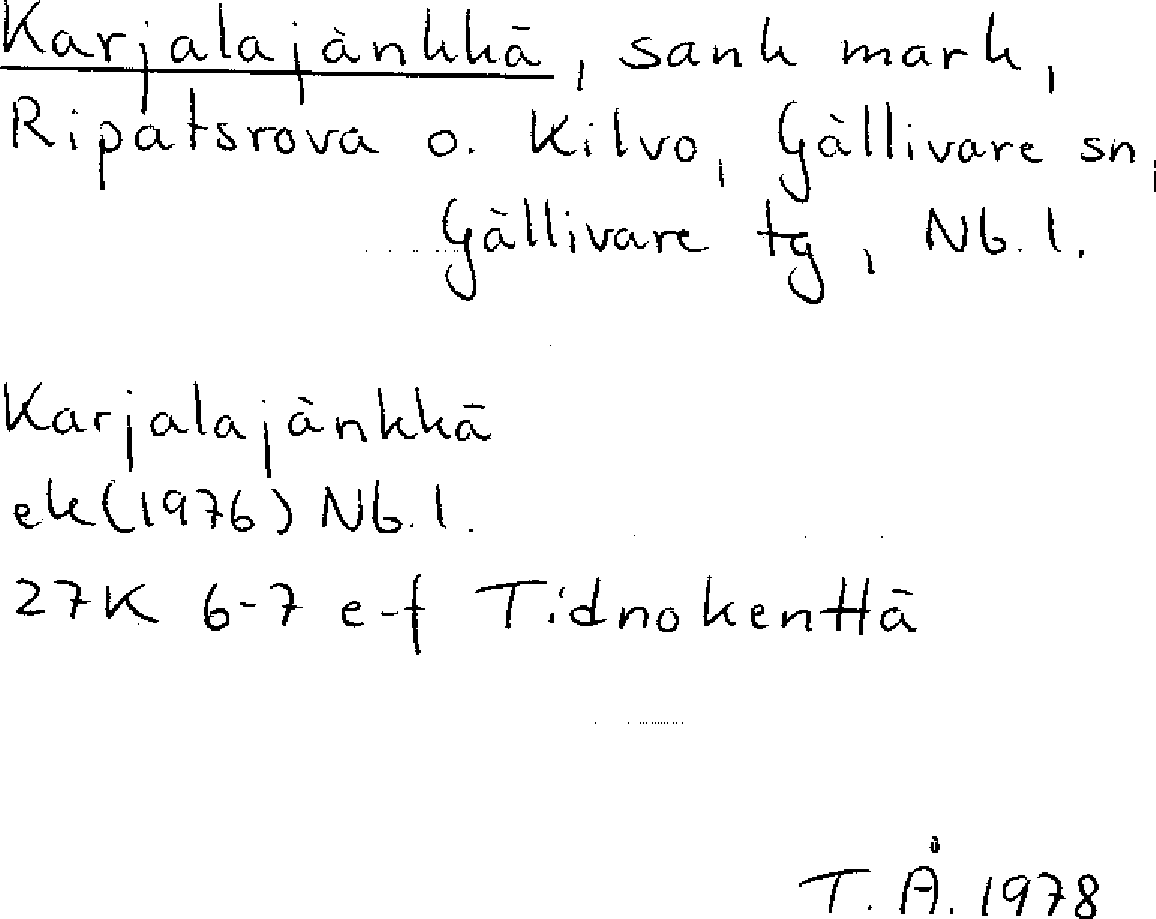 Karjalajänkkä, sank mark,
Ripatsrova o. Kilvo, Gällivare sn,
Gällivare tg, Nb. l.
Karjalajänkkä
ek (1976) Nb. l.
27K 6-7 e-f Tidnokenttä
T. Å. 1978